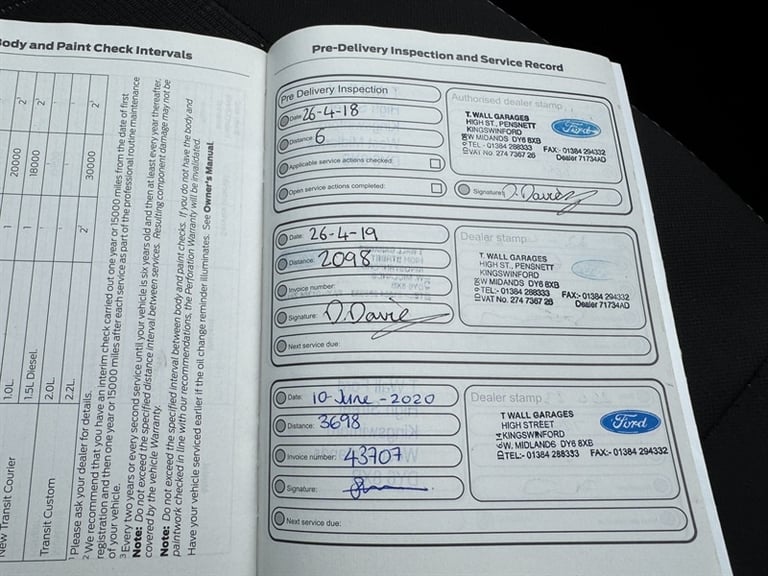 Body and Paint Check Intervals
20000
2¹
18000
2¹
30000
2¹
1
1
2¹
1.0L
1.5L Diesel
2.0L
2.2L
New Transit Courier
Transit Custom
¹ Please ask your dealer for details.
² We recommend that you have an interim check carried out one year or 15000 miles from the date of first
registration and then one year or 15000 miles after each service as part of the professional routine maintenance
of your vehicle.
³ Every two years or every second service until your vehicle is six years old and then at least every year thereafter.
Note: Do not exceed the specified distance interval between services. Resulting component damage may not be
covered by the vehicle Warranty.
Note: Do not exceed the specified interval between body and paint checks. If you do not have the body and
paintwork checked in line with our recommendations, the Perforation Warranty will be invalidated.
Have your vehicle serviced earlier if the oil change reminder illuminates. See Owner's Manual.
Pre-Delivery Inspection and Service Record
Pre Delivery Inspection
Date: 26-4-18
Distance: 6
Applicable service actions checked:
Open service actions completed:
Authorised dealer stamp
T. WALL GARAGES
HIGH ST., PENSNETT
KINGSWINFORD
W MIDLANDS DY6 8XB
TEL - 01384 288333 FAX:- 01384 294332
VAT No. 274 7367 26 Dealer 71734AD
Ford
Signature: D. Davies
Date: 26-4-19
Distance: 2098
Invoice number:
Signature: D. Davies
Next service due:
Dealer stamp
T. WALL GARAGES
HIGH ST., PENSNETT
KINGSWINFORD
W MIDLANDS DY6 8XB
TEL- 01384 288333 FAX:- 01384 294332
VAT No. 274 7367 26 Dealer 71734AD
Date: 10-June-2020
Distance: 3698
Invoice number: 43707
Signature:
Next service due:
Dealer stamp
T WALL GARAGES
HIGH STREET
KINGSWINFORD
W. MIDLANDS DY6 8XB
TEL:- 01384 288333 FAX:- 01384 294332
Ford